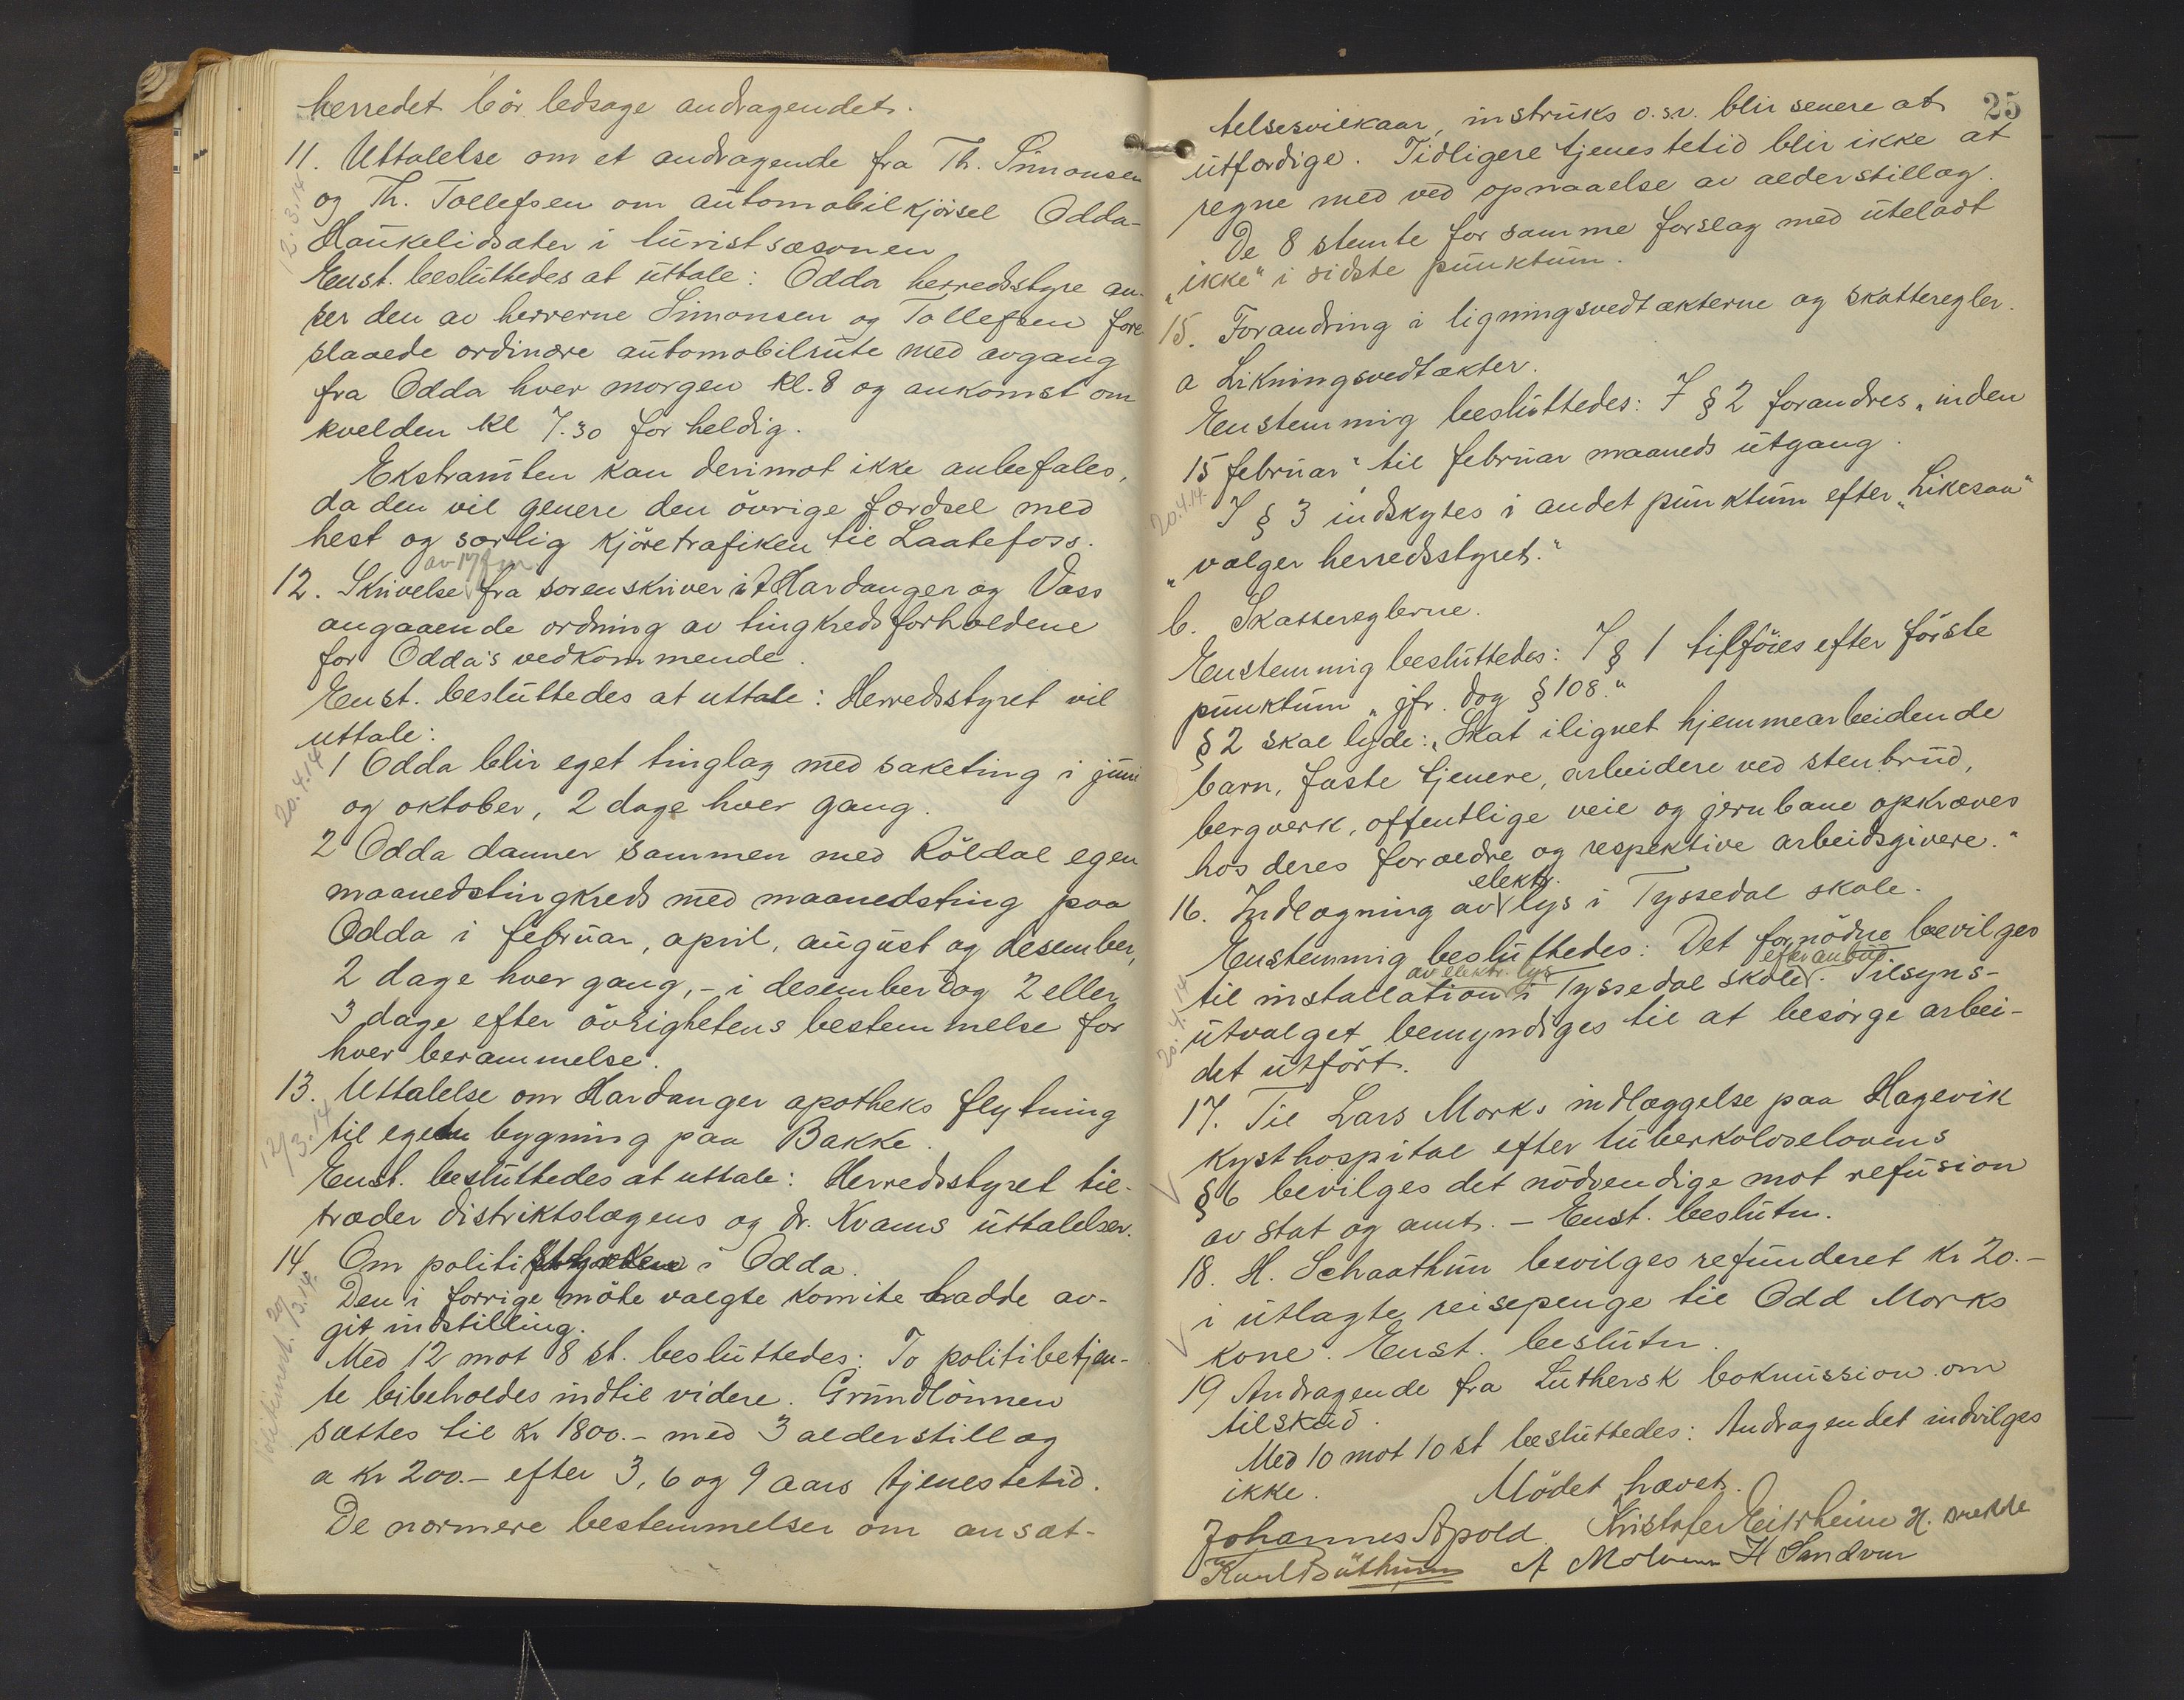 herredet bör ledsage andragendet.
11. Uttalelse om et andragende fra Th. Simonsen
og Th. Tollefsen om automobilkjörsel Odda-
12.3.14
Haukelidsæter i turistsæsonen
Enst. besluttedes at uttale: Odda herredsstyre an-
ser den av herrerne Simonsen og Tollefsen fore-
slaaede ordinære automobilrute med avgang
fra Odda hver morgen kl. 8 og ankomst om
kvelden kl 7.30 for heldig.
Ekstraruten kan derimot ikke anbefales,
da den vil genere den övrige færdsel med
hest og særlig kjöretrafiken til Laatefoss.
12. Skrivelse fra sorenskriver i Hardanger og Voss
angaaende ordning av tingkredsforholdene
for Odda's vedkommende.
Enst. besluttedes at uttale: Herredsstyret vil
uttale:
20.4.14
1 Odda blir eget tinglag med saketing i juni
og oktober, 2 dage hver gang.
2 Odda danner sammen med Röldal egen
maanedstingkreds med maanedsting paa
Odda i februar, april, august og desember,
2 dage hver gang, - i desember dog 2 eller
3 dage efter övrighetens bestemmelse for
hver berammelse.
13. Uttalelse om Hardanger apotheks flytning
12/3.14
til egen bygning paa Bakke.
Enst. besluttedes at uttale: Herredsstyret til-
træder distriktslægens og dr. Kvams uttalelser.
14 Om politi i Odda.
20/3.14.
Den i forrige möte valgte komite hadde av-
git indstilling.
Med 12 mot 8 st. besluttedes: To politibetjen-
te bibeholdes indtil videre. Grundlönnen
sættes til kr 1800.- med 3 alderstillæg
a kr 200.- efter 3, 6 og 9 aars tjenestetid.
De nærmere bestemmelser om ansæt-
25
telsesvilkaar, instruks o.s.v. blir senere at
utfærdige. Tidligere tjenestetid blir ikke at
regne med ved opnaaelse av alderstillæg.
De 8 stemte for samme forslag med utelatt
"ikke" i sidste punktum.
15. Forandring i ligningsvedtækterne og skatteregler.
a Likningsvedtækter.
Enstemmig besluttedes: I § 2 forandres "inden
15 februar" til februar maaneds utgang.
20.4.14.
I § 3 indskytes i andet punktum efter "Likesaa"
"vælger herredsstyret."
b. Skattereglerne.
Enstemmig besluttedes: I § 1 tilföies efter förste
punktum "jfr. dog § 108."
§ 2 skal lyde: "Skat ilignet hjemmearbeidende
barn, faste tjenere, arbeidere ved stenbrud,
bergverk, offentlige veie og jernbane opkræves
hos deres forældre og respektive arbeidsgivere."
16. Indlægning av elektr. lys i Tyssedal skole.
Enstemmig besluttedes: Det fornödne bevilges
20.4.14
til installation av elektr. lys i Tyssedal skole efter anbud. Tilsyns-
utvalget bemyndiges til at besörge arbei-
det utfört.
17. Til Lars Morks indlæggelse paa Hagevik
kysthospital efter tuberkuloselovens
§ 6 bevilges det nödvendige mot refusion
av stat og amt. - Enst. beslutn.
18. H. Schaathun bevilges refunderet kr 20.-
i utlagte reisepenge til Odd Morks
kone. Enst. beslutn.
19 Andragende fra Luthersk bokmission om
tilskud.
Med 10 mot 10 st besluttedes: Andragendet indvilges
ikke.
Mödet hævet.
Johannes Apold. Kristofer Eitrheim
H Sandven